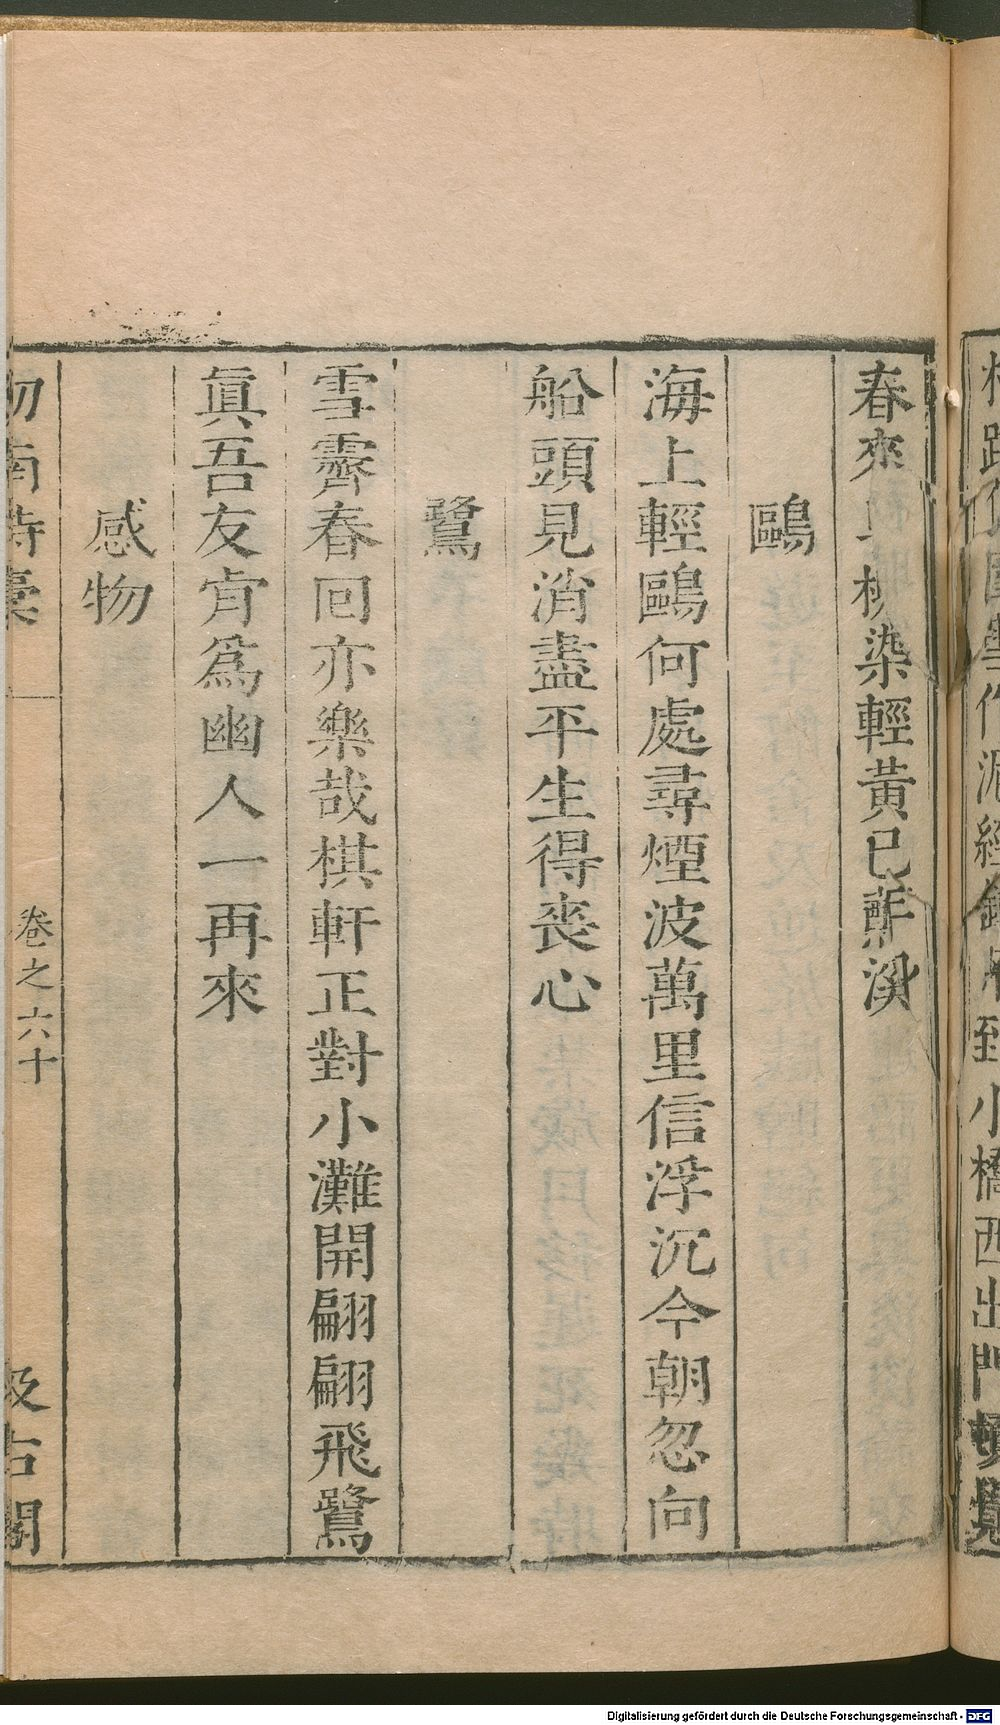 春來 染輕黃已 溪
鷗
海上輕鷗何處尋煙波萬里信浮沉今朝忽向
船頭見消盡平生得喪心
鷺
雪霽春回亦樂哉棋軒正對小灘開翩翩飛鷺
眞吾友肯爲幽人一再來
感物
卷之六十
汲古閣
Digitalisierung gefördert durch die Deutsche Forschungsgemeinschaft - DFG